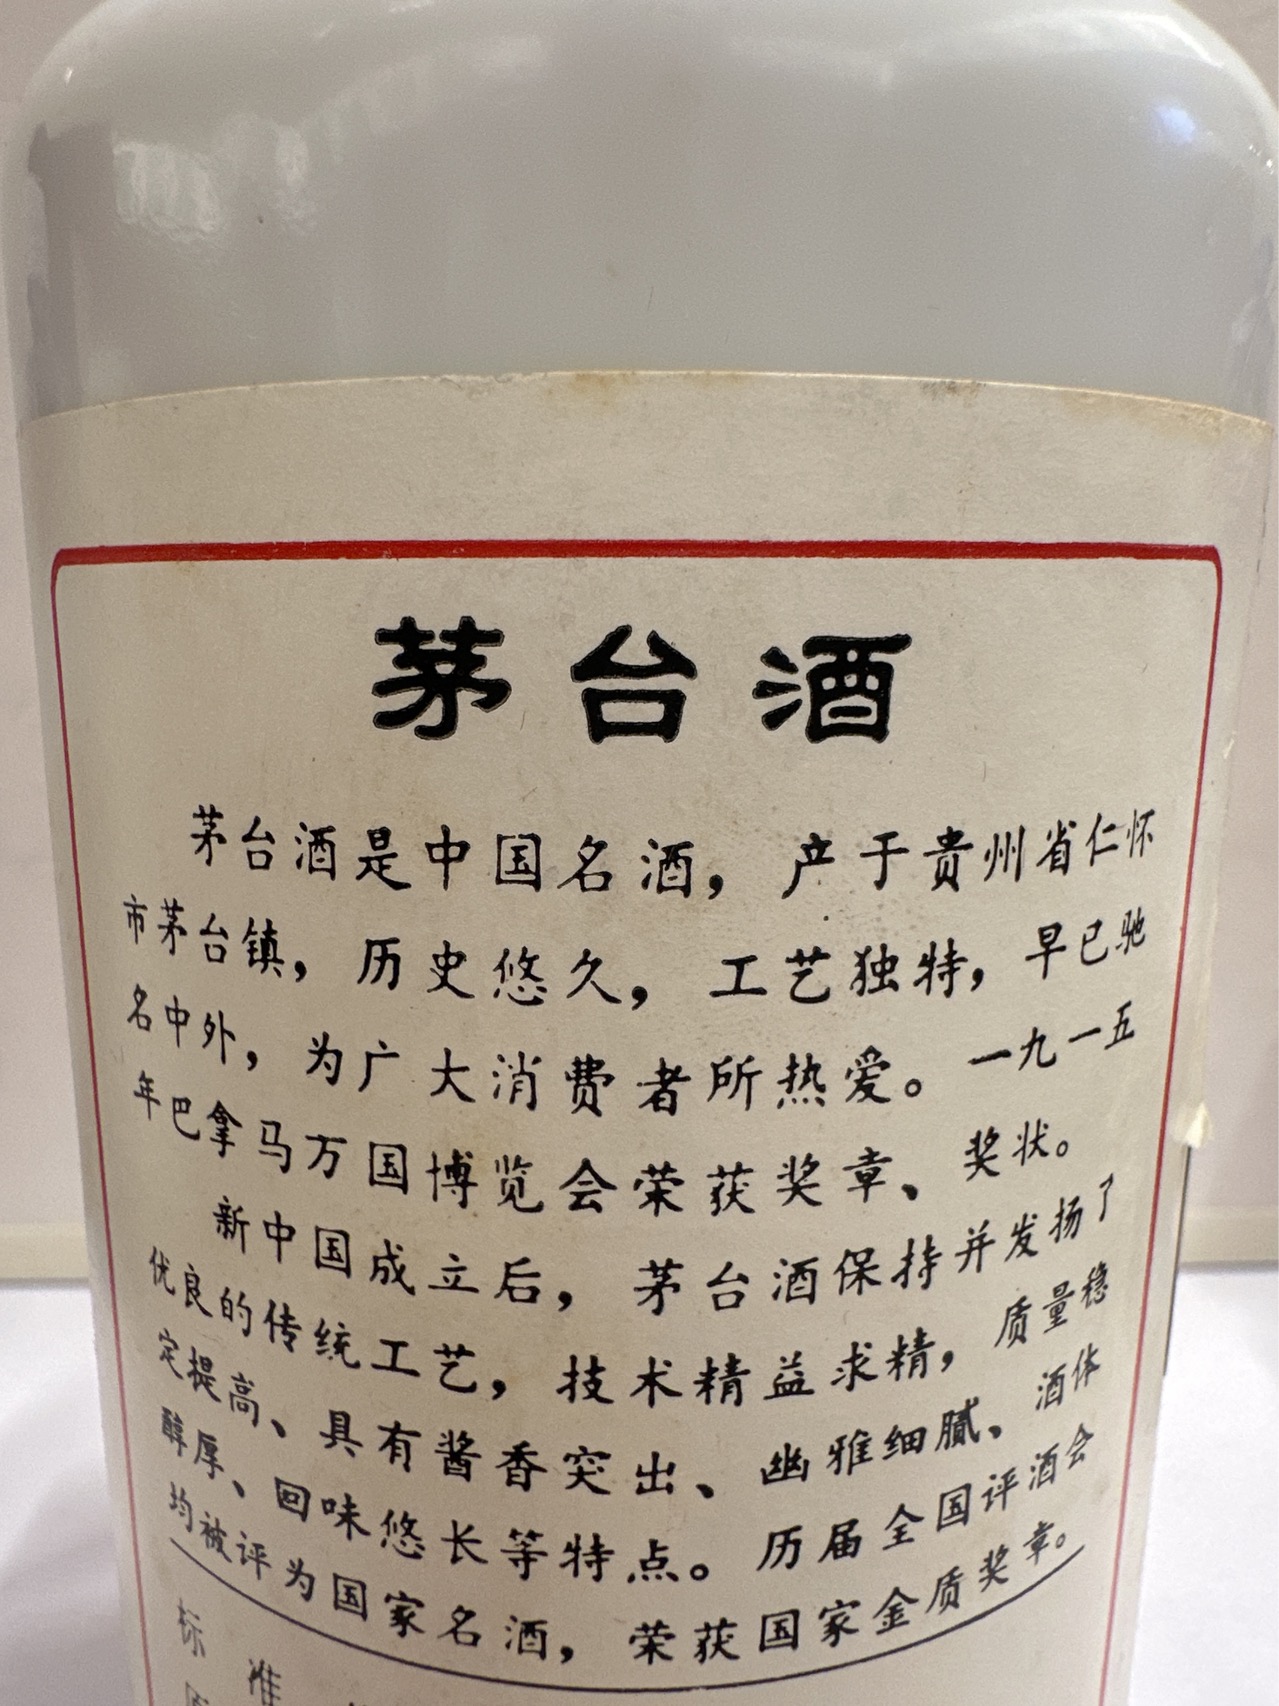 茅台酒
茅台酒是中国名酒，产于贵州省仁怀
市茅台镇，历史悠久，工艺独特，早已驰
名中外，为广大消费者所热爱。一九一五
年巴拿马万国博览会荣获奖章、奖状。
新中国成立后，茅台酒保持并发扬了
优良的传统工艺，技术精益求精，质量稳
定提高、具有酱香突出、幽雅细腻、酒体
醇厚、回味悠长等特点。历届全国评酒会
均被评为国家名酒，荣获国家金质奖章。
标准